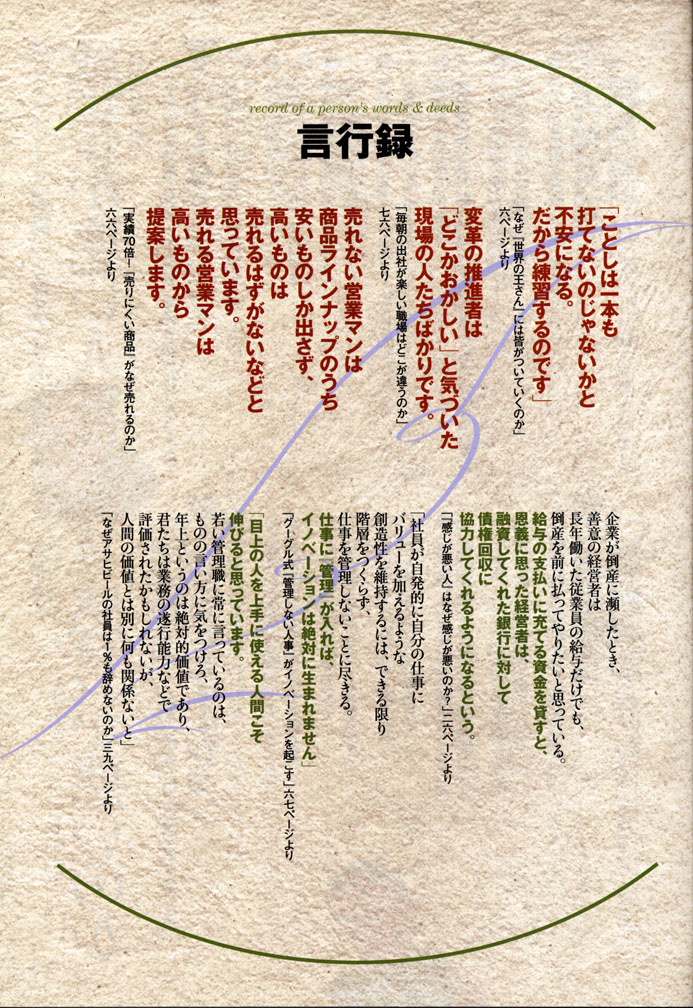 record of a person's words & deeds
言行録
「ことしは一本も
打てないのじゃないかと
不安になる。
だから練習するのです」
「なぜ「世界の王さん」には皆がついていくのか」
六ページより
変革の推進者は
「どこかおかしい」と気づいた
現場の人たちばかりです。
「毎朝の出社が楽しい職場はどこが違うのか」
七六ページより
売れない営業マンは
商品ラインナップのうち
安いものしか出さず、
高いものは
売れるはずがないなどと
思っています。
売れる営業マンは
高いものから
提案します。
「実績70倍!「売りにくい商品」がなぜ売れるのか」
六六ページより
企業が倒産に瀕したとき、
善意の経営者は
長年働いた従業員の給与だけでも、
倒産を前に払ってやりたいと思っている。
給与の支払いに充てる資金を貸すと、
恩義に思った経営者は、
融資してくれた銀行に対して
債権回収に
協力してくれるようになるという。
「「感じが悪い人」はなぜ感じが悪いのか?」二六ページより
「社員が自発的に自分の仕事に
バリューを加えるような
創造性を維持するには、できる限り
階層をつくらず、
仕事を管理しないことに尽きる。
仕事に〝管理〟が入れば、
イノベーションは絶対に生まれません」
「グーグル式「管理しない人事」がイノベーションを起こす」六七ページより
「目上の人を上手に使える人間こそ
伸びると思っています。
若い管理職に常に言っているのは、
ものの言い方に気をつけろ、
年上というのは絶対的価値であり、
君たちは業務の遂行能力などで
評価されたかもしれないが、
人間の価値とは別に何も関係ないと」
「なぜアサヒビールの社員は1%も辞めないのか」三九ページより